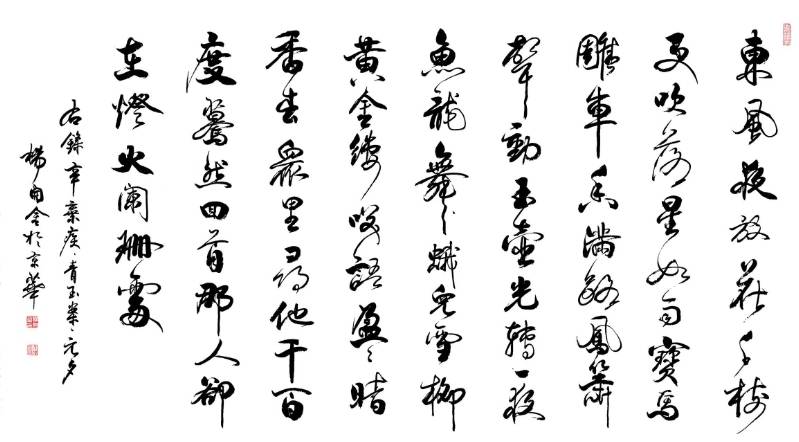 東風夜放花千樹
更吹落星如雨寶馬
雕車香滿路鳳簫
聲動玉壺光轉一夜
魚龍舞蛾兒雪柳
黃金縷笑語盈〻暗
香去眾里尋他千百
度驀然回首那人卻
在燈火闌珊處
右錄辛棄疾、青玉案、元夕
楊 於京華